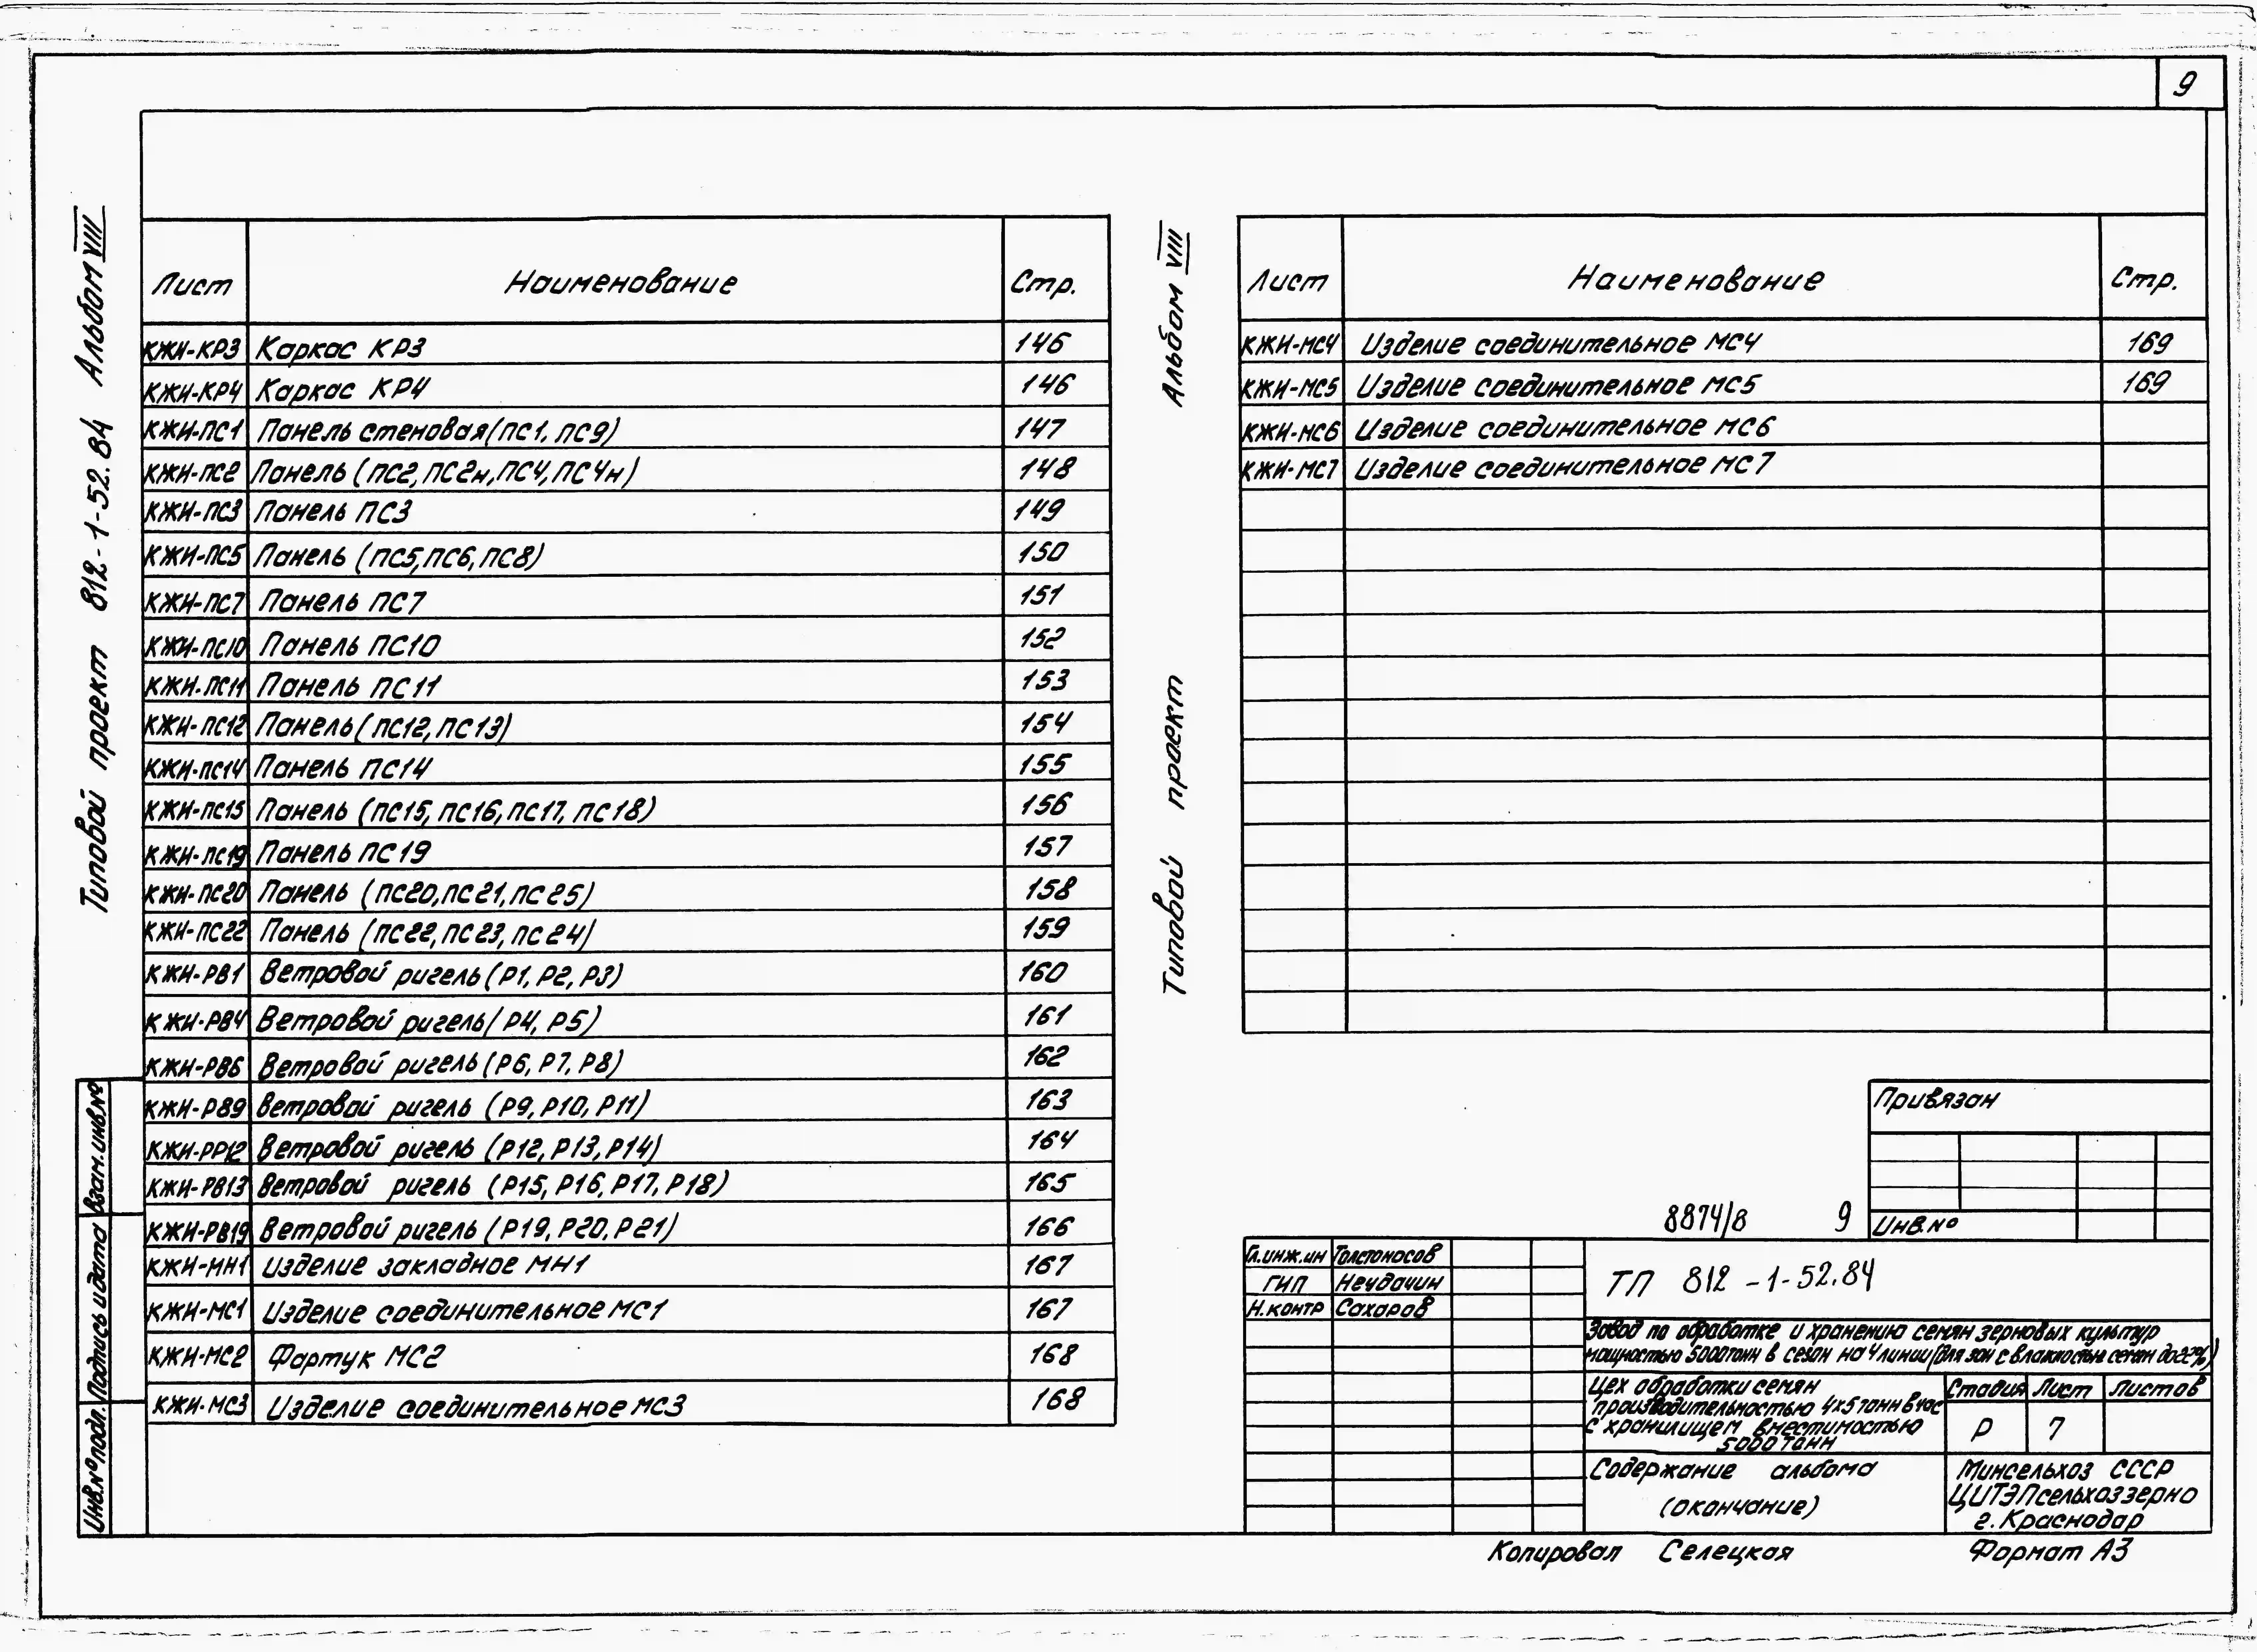 9
Типовой проект 812-1-52.84 Альбом VIII
Лист Наименование Стр.
КЖИ-КР3 Каркас КР3 146
КЖИ-КР4 Каркас КР4 146
КЖИ-ПС1 Панель стеновая(ПС1, ПС9) 147
КЖИ-ПС2 Панель (ПС2, ПС2н, ПС4, ПС4н) 148
КЖИ-ПС3 Панель ПС3 149
КЖИ-ПС5 Панель (ПС5, ПС6, ПС8) 150
КЖИ-ПС7 Панель ПС7 151
КЖИ-ПС10 Панель ПС10 152
КЖИ-ПС11 Панель ПС11 153
КЖИ-ПС12 Панель (ПС12, ПС13) 154
КЖИ-ПС14 Панель ПС14 155
КЖИ-ПС15 Панель (ПС15, ПС16, ПС17, ПС18) 156
КЖИ-ПС19 Панель ПС19 157
КЖИ-ПС20 Панель (ПС20, ПС21, ПС25) 158
КЖИ-ПС22 Панель (ПС22, ПС23, ПС24) 159
КЖИ-РВ1 Ветровой ригель (Р1, Р2, Р3) 160
КЖИ-РВ4 Ветровой ригель (Р4, Р5) 161
КЖИ-РВ6 Ветровой ригель (Р6, Р7, Р8) 162
КЖИ-РВ9 Ветровой ригель (Р9, Р10, Р11) 163
КЖИ-РР12 Ветровой ригель (Р12, Р13, Р14) 164
КЖИ-РВ13 Ветровой ригель (Р15, Р16, Р17, Р18) 165
КЖИ-РВ19 Ветровой ригель (Р19, Р20, Р21) 166
КЖИ-МН1 Изделие закладное МН1 167
КЖИ-МС1 Изделие соединительное МС1 167
КЖИ-МС2 Фартук МС2 168
КЖИ-МС3 Изделие соединительное МС3 168
Взам.инв.№
Подпись и дата
Инв.№подл.
Типовой проект Альбом VIII
Лист Наименование Стр.
КЖИ-МС4 Изделие соединительное МС4 169
КЖИ-МС5 Изделие соединительное МС5 169
КЖИ-МС6 Изделие соединительное МС6
КЖИ-МС7 Изделие соединительное МС7
Привязан
Инв.№
8874/8 9
Гл.инж.ин Толстоносов
ГИП Неудачин
Н.контр Сахаров
ТП 812-1-52.84
Завод по обработке и хранению семян зерновых культур
мощностью 5000тонн в сезон на 4 линии (для зон с влажностью семян до 22%)
Цех обработки семян
производительностью 4х5 тонн в час
с хранилищем вместимостью
5000 тонн
Стадия Лист Листов
Р 7
Содержание альбома
(окончание)
Минсельхоз СССР
ЦИТЭПсельхоззерно
г. Краснодар
Копировал Селецкая Формат А3